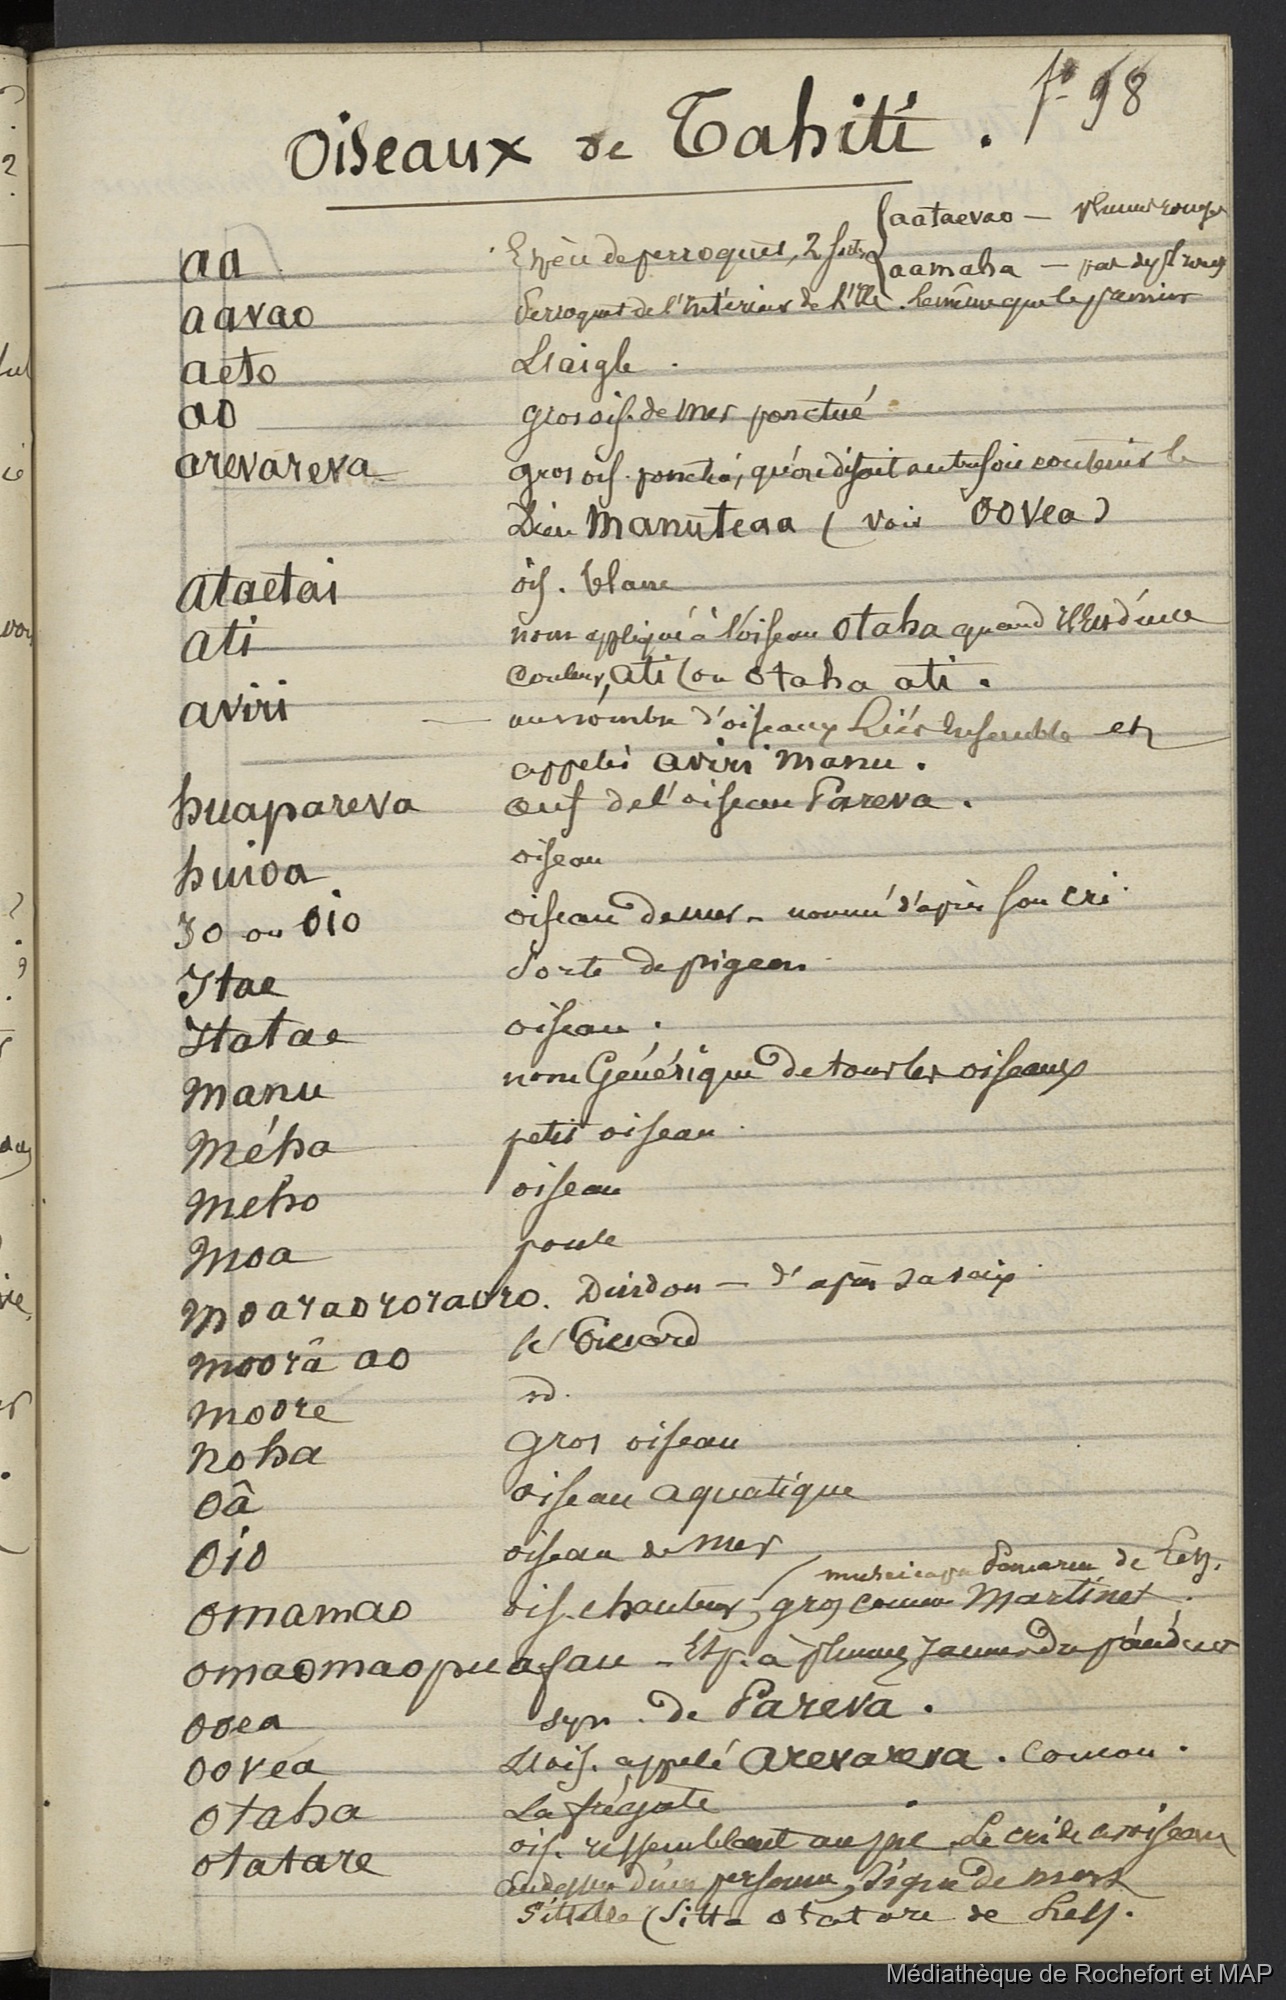 fo 98
Oiseaux de Tahiti.
aa Espèce de perroquet, 2 sortes { aataevao — plumes rouges
aamaha — pas de pl. rouges
aavao Perroquet de l'intérieur de l'Ile. le même que le premier
aeto L'aigle.
ao gros ois. de mer ponctué
arevareva gros ois. ponctué, qu'on disait autrefois contenir le
Dieu Manuteaa (voir oovea)
ataetai ois. blanc
ati nom appliqué à l'oiseau otaha quand il est d'une
couleur, ati (ou otaha ati.
aviri — un nombre d'oiseaux liés ensemble est
appelés aviri manu.
huapareva œuf de l'oiseau Pareva.
huioa oiseau
Io ou oio oiseau de mer - nommé d'après son cri.
Itae Sorte de pigeon.
Itatae oiseau.
manu nom Générique de tous les oiseaux
Méha petit oiseau.
meho oiseau
moa poule
moaraororauro. Dindon — d'après sa voix.
moorâ ao le Canard
moore id.
noha gros oiseau
oâ oiseau aquatique
oio oiseau de mer
muscicapa Pomarea de Less.
omamao ois. chanteur, gros comme Martinet.
omaomaopuafau - Esp. à plumes jaunes du
ooea syn. de Pareva.
oovea L'ois. appelé arevareva. coucou.
otaha La frégate
otatare ois. ressemblant au pie. Le cri de cet oiseau
au dessus d'une personne, signe de mort
Sittelle (Sitta otatare de Less.
Médiathèque de Rochefort et MAP